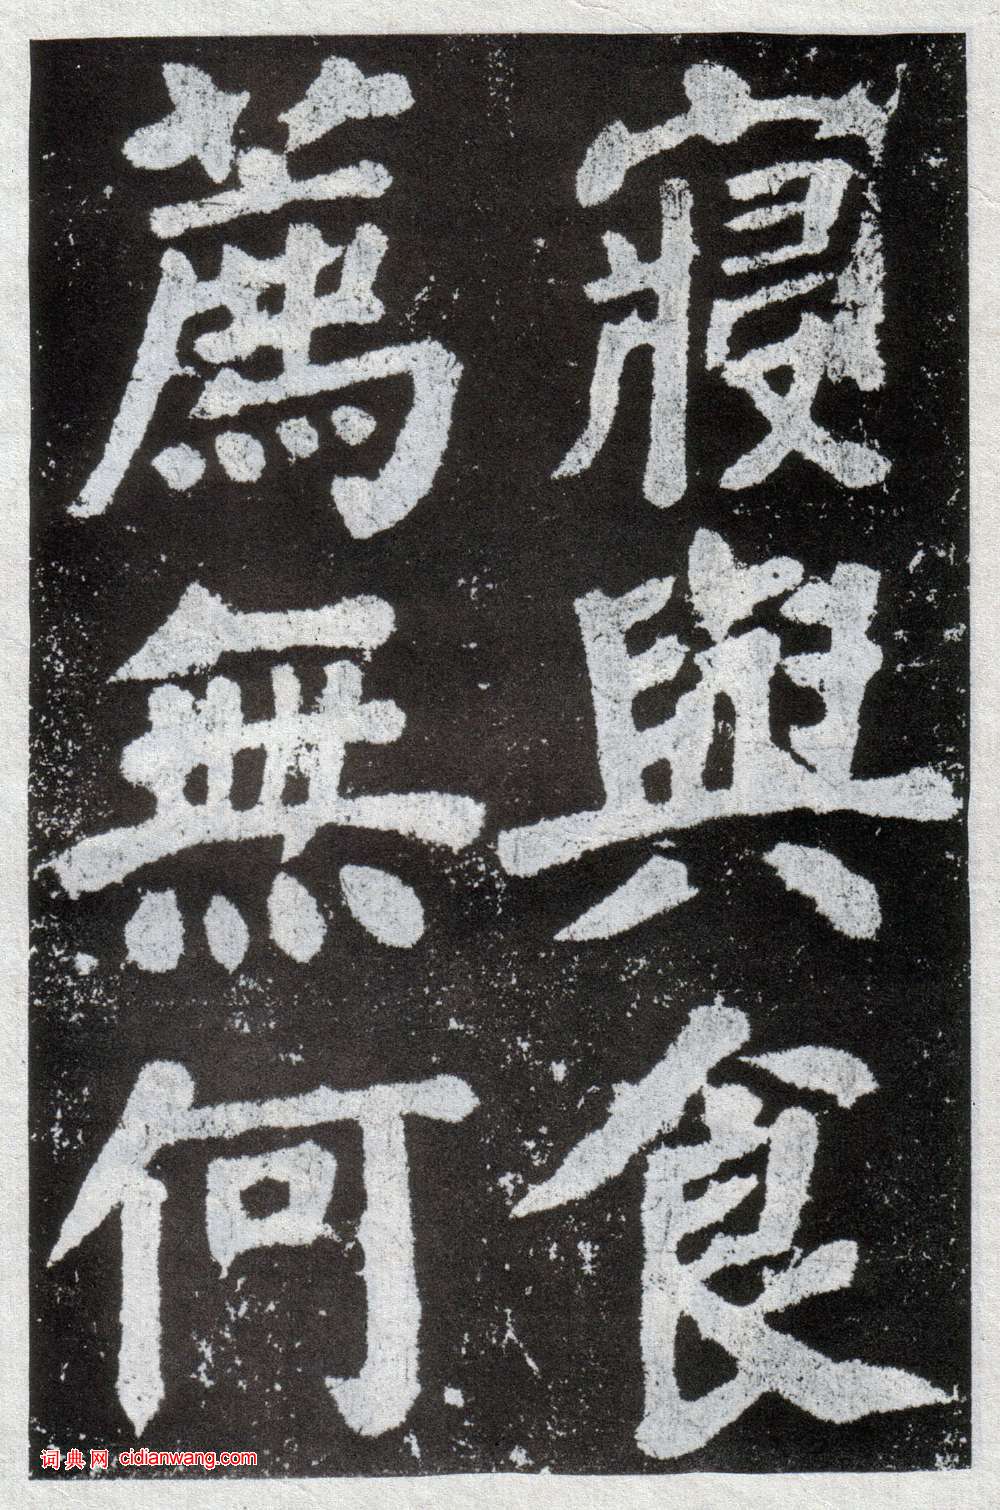 寢與食
薦無何
词典网 cidianwang.com